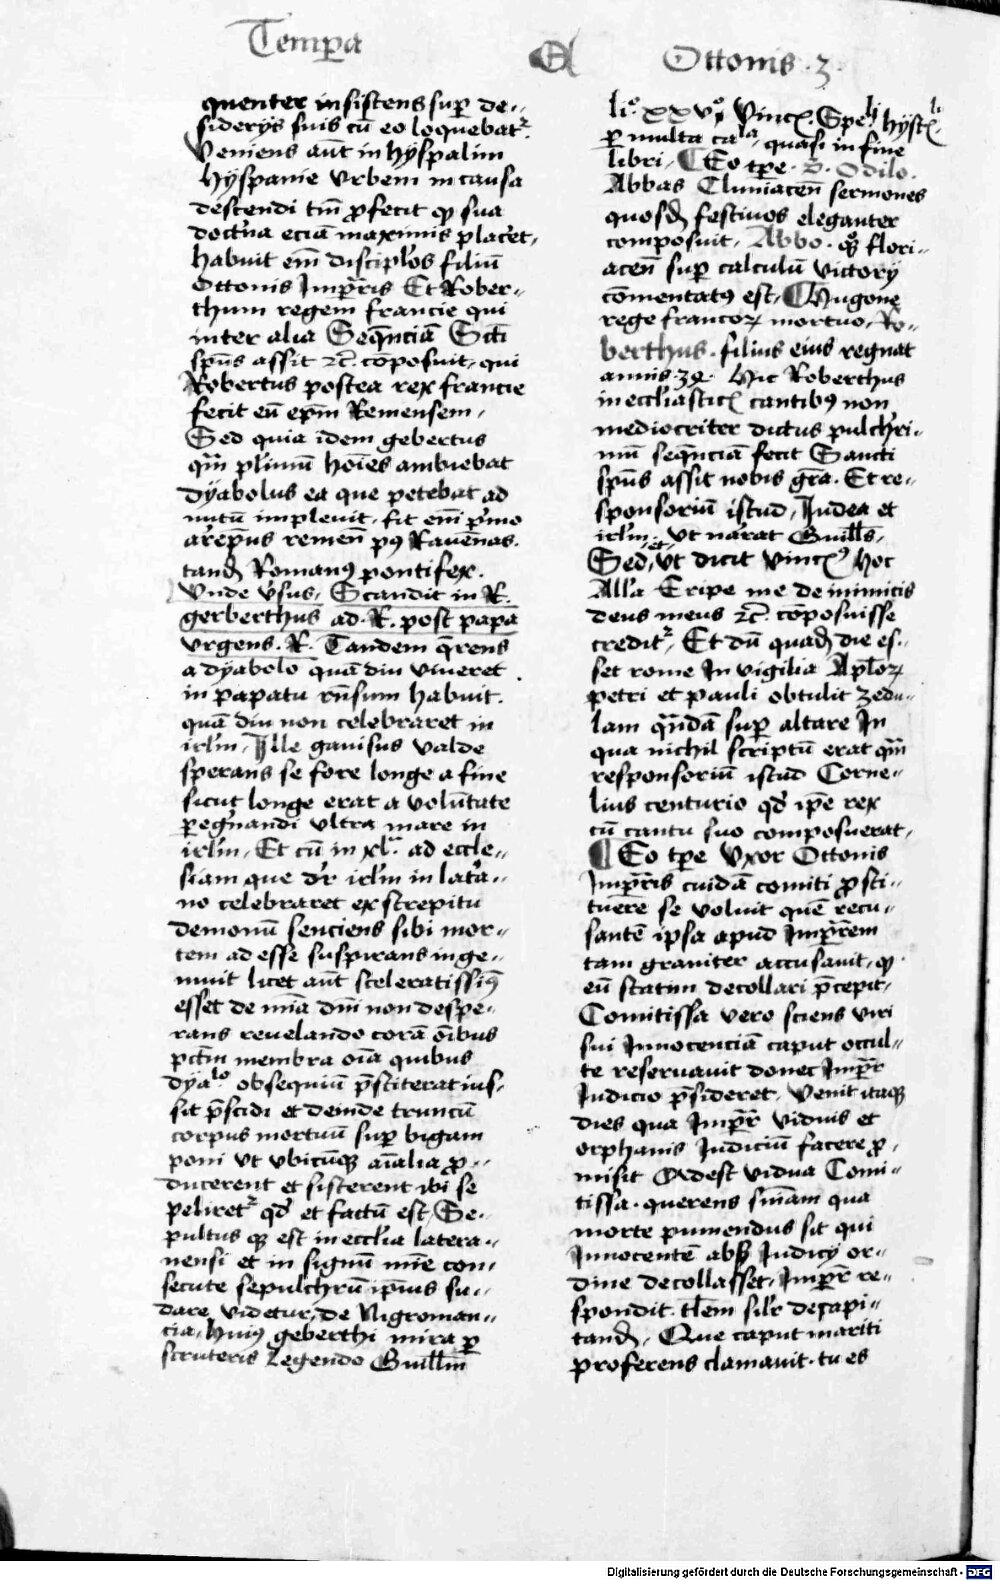 Temp̱a
Ottonis · 3 ·
quenter insistens sup̱ de„
siderijs suis cū eo loquebatꝛ
Veniens aūt in hÿspalim
hÿspanie vrbem in causa
descendi tm̄ ꝓfecit ꝙ sua
doctͥna eciā maximis placͤet,
habuit em̄ discip̄los filiū
Ottonis Imꝑr̄is Et Rober„
thum regem francie qui
inter alia Seq̄nciā Sct̄i
sp̄us assit ⁊c̄. cōposuit, qui
Robertus postea rex francie
fecit eū ep̄m Remensem,
Sed quia idem gebertus
qm̄ pl̄imū hoīes ambuebat
dyabolus ea que petebat ad
nutū impleuit, fit em̄ pͥmo
arēpus remen̄ pꝰ Rauen̄as.
tandē Romanꝰ pontifex.
Vnde vͤsus, Scandit in R.
gerberthus ad. R. post papa
vrgens. R. Tandem q̄rens
a dyabolo quā diu viueret
in papatu rn̄sum habuit.
quā diu non celebraret in
irl̄m, Ille gauisus valde
sperans se fore longe a fine
sicut longe erat a volūtate
peregͥnandi vltra mare in
irl̄m, Et cū in xlᵃ ad eccle„
siam que dr̄ irl̄m in latͣa„
no celebraret ex strepitu
demonū senciens sibi mor„
tem ad esse suspirans inge„
muit licet aūt sceleratissimꝰ
esset de mīa dn̄i non despe„
rans reuelando corā oībus
pctm̄ membra oīa quibus
dyaˡᵒ obsequiū p̄stiterat ius„
sit p̄scidi et deinde truncū
corpus mortuū sup̱ bigam
poni vt vbicūqꝫ aīalia ꝓ„
ducerent et sisterent ibi se
peliretꝛ qd̄ et factū est, Se„
pultus qꝫ est in eccl̄ia latera„
nensi et in signū mīe con„
secute sepulchrū ip̄ius su„
dare videtur, de Nigroman„
cia, huiꝰ geberthi mira ꝑ
scruteris Legendo Guill̄m
liͦ. xxvͦ, Vinc̄. Speˡⁱ hystˡⁱ.
ꝑ multa caˡᵃ, quasi in fine
libri, Eo tp̄e. d. Odilo.
Abbas Cluniacen̄ sermones
quosdā festiuos eleganter
composuit, Abbo. qͦꝫ flori„
acen̄ sup̱ calculū victorij
cōmentatꝰ est, Hugone
rege francoꝝ mortuo, Ro„
berthus. filius eius regnat
annis. 34. Hic Roberthus
in eccl̄iastic̄ cantibꝰ non
mediocriter doctus pulchri„
mū seq̄nciā fecit Sancti
sp̄us assit nobis gr̄a. Et re„
sponsoriū istud, Iudea et
irl̄m, vt nārat Guill̄s,
Sed, et vt dicit vinc̄ꝰ hoc
All̄a Eripe me de inimicis
deus meus ⁊c̄. cōposuisse
creditꝛ, Et dū quadā die es„
set rome In vigilia Apl̄oꝝ
petri et pauli obtulit zedu„
lam qͣndā sup̱ altare In
qua nichil scriptū erat qͣm
responsoriū istud Corne„
lius centurio qd̄ ip̄e rex
cū cantu suo composuerat,
Eo tp̄e vxor Ottonis
Imꝑr̄is cuidā comiti ꝓsti„
tuere se voluit quē recu„
santē ipsa apud Imꝑr̄em
tam grauiter accusauit, ꝙ
eū statim decollari p̄cepit,
Comitissa vero sciens viri
sui Innocenciā caput occul„
te reseruauit donec Imꝑr̄
Iudicio p̄sideret, Venit itaqꝫ
dies qua Imꝑr̄ viduis et
orphanis Iudiciū facere ꝓ„
misit Adest vidua Comi„
tissa, querens sn̄iam qua
morte puniendus sit qui
Innocentē absqꝫ Iudicij or„
dine decollasset, Imꝑr̄ re„
spondit. tl̄em sil̄r decapi„
tandū, Que caput mariti
proferens clamauit, tu es
Digitalisierung gefördert durch die Deutsche Forschungsgemeinschaft - DFG